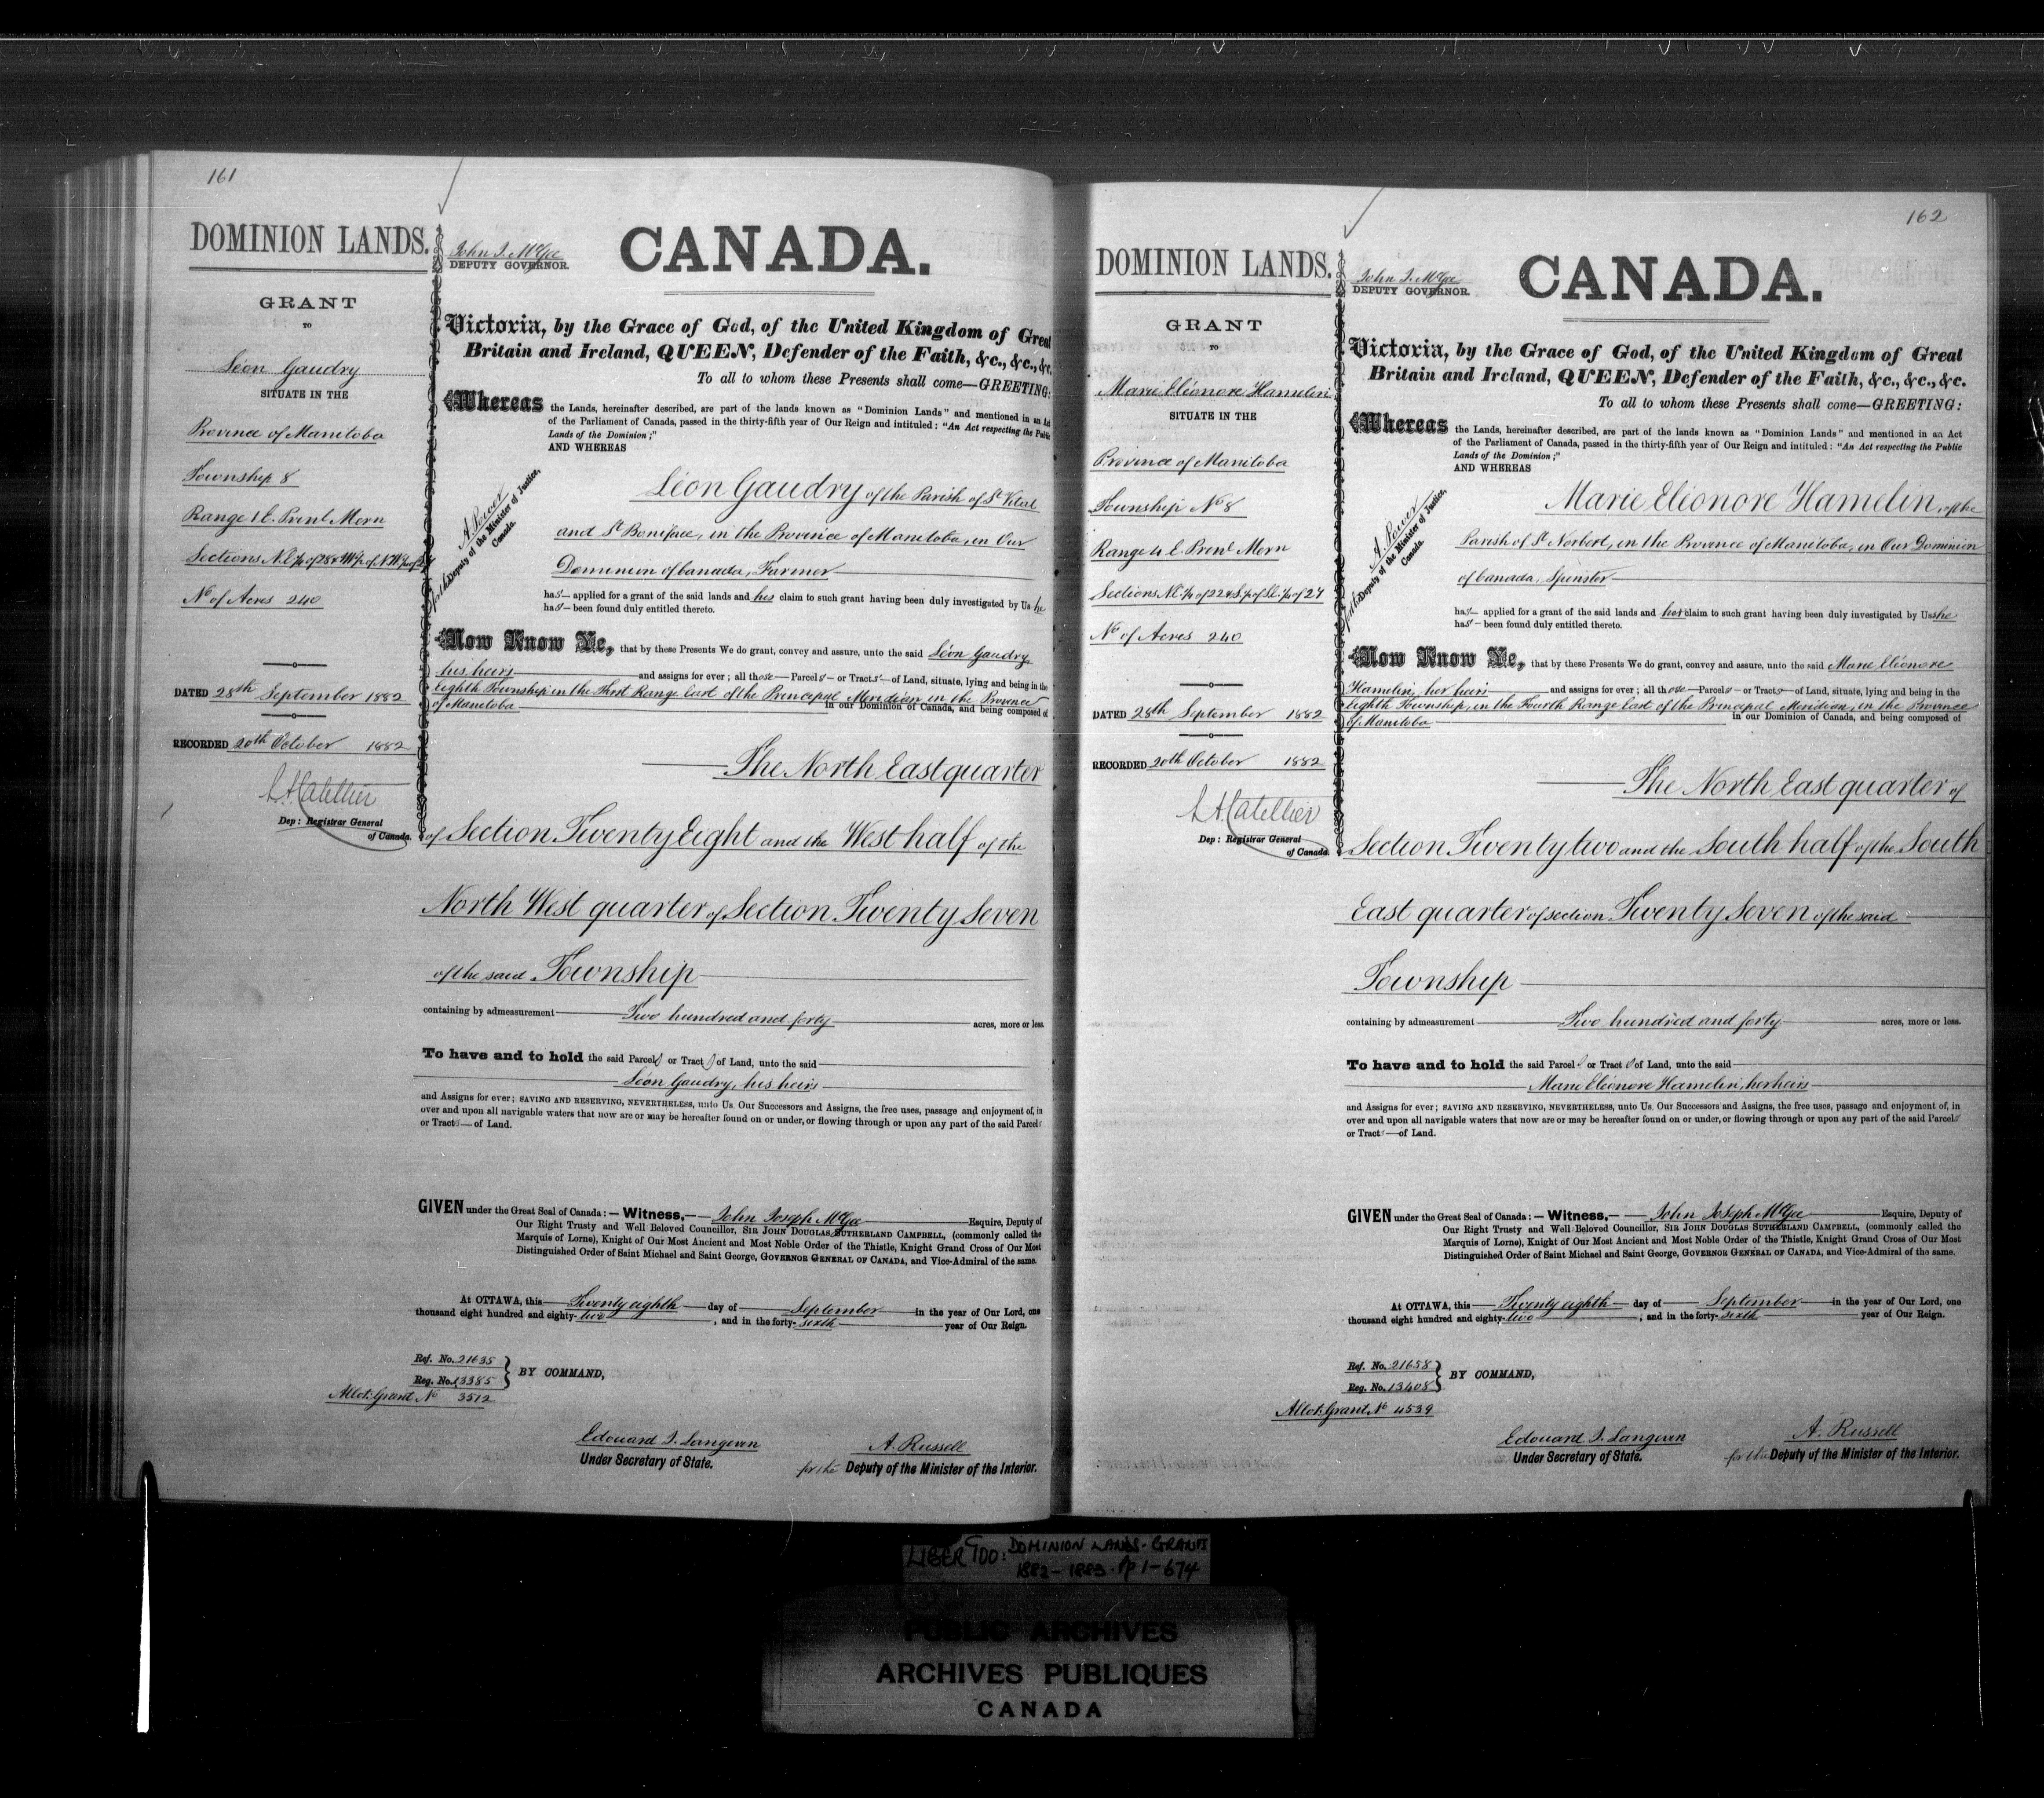 161
DOMINION LANDS.
GRANT
TO
Léon Gaudry
SITUATE IN THE
Province of Manitoba
Township 8
Range 1 E. Prinl Mern
Sections N.E ¼ of 28 & W ½ of N.W ¼ of 27
No of Acres 240
DATED 28th September 1882
RECORDED 20th October 1882
L.A. Catellier
Dep: Registrar General
of Canada.
John J. McGee
DEPUTY GOVERNOR.
CANADA.
Victoria, by the Grace of God, of the United Kingdom of Great
Britain and Ireland, QUEEN, Defender of the Faith, &c., &c., &c.
To all to whom these Presents shall come—GREETING:
Whereas the Lands, hereinafter described, are part of the lands known as "Dominion Lands" and mentioned in an Act
of the Parliament of Canada, passed in the thirty-fifth year of Our Reign and intituled: "An Act respecting the Public
Lands of the Dominion;"
AND WHEREAS
A. Power
for the Deputy of the Minister of Justice,
Canada.
Léon Gaudry of the Parish of St Vital
and St Boniface, in the Province of Manitoba, in Our
Dominion of Canada, Farmer
has applied for a grant of the said lands and his claim to such grant having been duly investigated by Us he
has been found duly entitled thereto.
Now Know Ye, that by these Presents We do grant, convey and assure, unto the said Léon Gaudry
his heirs and assigns for ever; all those Parcels or Tracts of Land, situate, lying and being in the
Eighth Township in the First Range East of the Principal Meridian in the Province
of Manitoba in our Dominion of Canada, and being composed of
The North East quarter
of Section Twenty Eight and the West half of the
North West quarter of Section Twenty Seven
of the said Township
containing by admeasurement Two hundred and forty acres, more or less.
To have and to hold the said Parcels or Tracts of Land, unto the said
Léon Gaudry, his heirs
and Assigns for ever; SAVING AND RESERVING, NEVERTHELESS, unto Us, Our Successors and Assigns, the free uses, passage and enjoyment of, in
over and upon all navigable waters that now are or may be hereafter found on or under, or flowing through or upon any part of the said Parcels
or Tracts of Land.
GIVEN under the Great Seal of Canada:—Witness,— John Joseph McGee Esquire, Deputy of
Our Right Trusty and Well Beloved Councillor, SIR JOHN DOUGLAS SUTHERLAND CAMPBELL, (commonly called the
Marquis of Lorne), Knight of Our Most Ancient and Most Noble Order of the Thistle, Knight Grand Cross of Our Most
Distinguished Order of Saint Michael and Saint George, GOVERNOR GENERAL OF CANADA, and Vice-Admiral of the same.
At OTTAWA, this Twenty eighth day of September in the year of Our Lord, one
thousand eight hundred and eighty-two, and in the forty-sixth year of Our Reign.
Ref. No. 21635
Reg. No. 13385
BY COMMAND,
Allot. Grant No 3512
Edouard J. Langevin
Under Secretary of State.
A. Russell
for the Deputy of the Minister of the Interior.
162
DOMINION LANDS.
GRANT
TO
Marie Eléonore Hamelin
SITUATE IN THE
Province of Manitoba
Township No 8
Range 4 E Prinl Mern
Sections N.E ¼ of 22 & S ½ of S.E. ¼ of 27
No of Acres 240
DATED 28th September 1882
RECORDED 20th October 1882
L.A. Catellier
Dep: Registrar General
of Canada.
John J. McGee
DEPUTY GOVERNOR.
CANADA.
Victoria, by the Grace of God, of the United Kingdom of Great
Britain and Ireland, QUEEN, Defender of the Faith, &c., &c., &c.
To all to whom these Presents shall come—GREETING:
Whereas the Lands, hereinafter described, are part of the lands known as "Dominion Lands" and mentioned in an Act
of the Parliament of Canada, passed in the thirty-fifth year of Our Reign and intituled: "An Act respecting the Public
Lands of the Dominion;"
AND WHEREAS
A. Power
for the Deputy of the Minister of Justice,
Canada.
Marie Eléonore Hamelin, of the
Parish of St Norbert, in the Province of Manitoba, in Our Dominion
of Canada, Spinster
has applied for a grant of the said lands and her claim to such grant having been duly investigated by Us she
has been found duly entitled thereto.
Now Know Ye, that by these Presents We do grant, convey and assure, unto the said Marie Eléonore
Hamelin, her heirs and assigns for ever; all those Parcels or Tracts of Land, situate, lying and being in the
Eighth Township, in the Fourth Range East of the Principal Meridian, in the Province
of Manitoba in our Dominion of Canada, and being composed of
The North East quarter of
Section Twenty two and the South half of the South
East quarter of section Twenty Seven of the said
Township
containing by admeasurement Two hundred and forty acres, more or less.
To have and to hold the said Parcels or Tracts of Land, unto the said
Marie Eléonore Hamelin, her heirs
and Assigns for ever; SAVING AND RESERVING, NEVERTHELESS, unto Us, Our Successors and Assigns, the free uses, passage and enjoyment of, in
over and upon all navigable waters that now are or may be hereafter found on or under, or flowing through or upon any part of the said Parcels
or Tracts—of Land.
GIVEN under the Great Seal of Canada:—Witness,— John Joseph McGee Esquire, Deputy of
Our Right Trusty and Well Beloved Councillor, SIR JOHN DOUGLAS SUTHERLAND CAMPBELL, (commonly called the
Marquis of Lorne), Knight of Our Most Ancient and Most Noble Order of the Thistle, Knight Grand Cross of Our Most
Distinguished Order of Saint Michael and Saint George, GOVERNOR GENERAL OF CANADA, and Vice-Admiral of the same.
At OTTAWA, this Twenty eighth day of September in the year of Our Lord, one
thousand eight hundred and eighty-two, and in the forty-sixth year of Our Reign.
Ref. No. 21658
Reg. No. 13408
BY COMMAND,
Allot. Grant No 4539
Edouard J. Langevin
Under Secretary of State.
A. Russell
for the Deputy of the Minister of the Interior.
LIBER 900: DOMINION LANDS-GRANTS
1882-1883. pp 1-674
PUBLIC ARCHIVES
ARCHIVES PUBLIQUES
CANADA